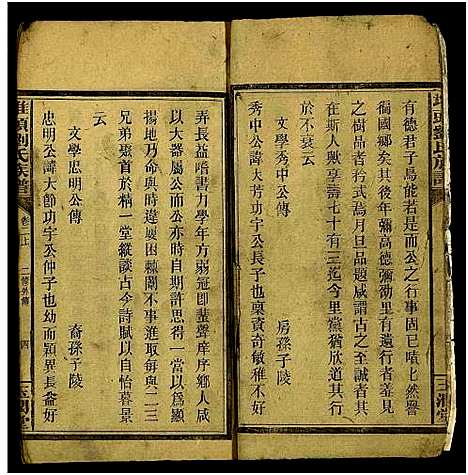 有德君子烏能若是之行事固已嘖上稱譽
徇國鄉矣其後年彌高德彌劭里有遺行者羞
之樹品者矜式焉月旦品題咸謂古之至誠者其
在斯人歟享壽七十有三迄今里黨猶欣道其
於不衰云
文學秀中公傳
房孫子陵
秀中公諱大芳功宇公長子也稟資奇敏博
弄長益嗜書力學年方弱冠即蜚聲庠序鄉人咸
以大器屬公而公亦時自期許思得一當以爲顯
揚地乃命與時違屢困棘闈不事進取每與二三
兄弟聚首於楠一堂縱談古今詩賦以自怡暮景
文學思明公傳
裔孫子陵
忠明公諱大節功宇公仲子也幼而穎異長益好
堆頭劉氏族譜
卷二上
二修外傳
四
玉潤堂